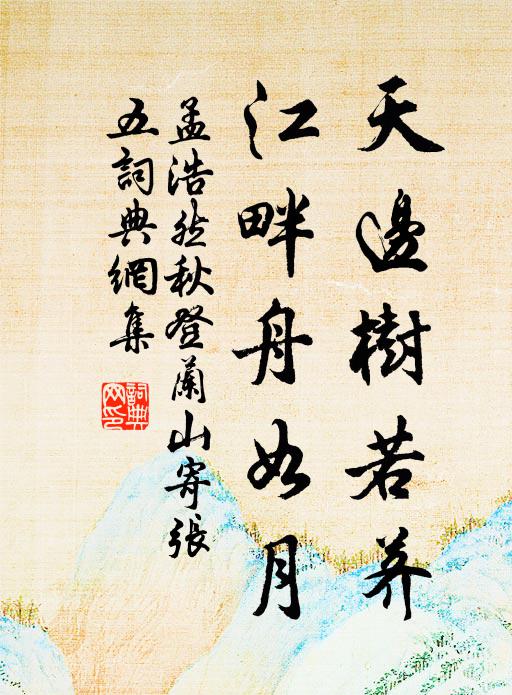 天邊樹若荠
江畔舟如月
孟浩然秋登蘭山寄張
五詞典網集
詞典
网印